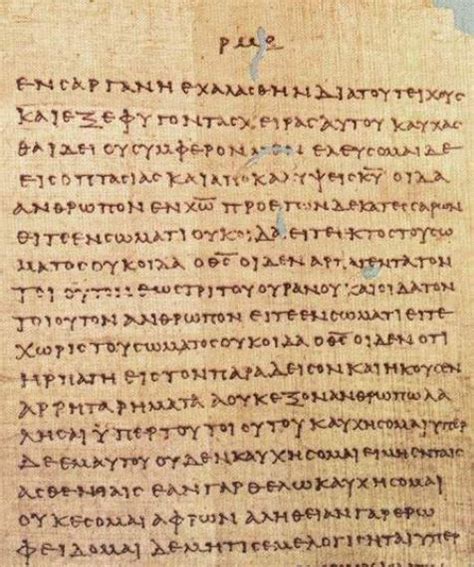 ΕΝϹΑΡΓΑΝΗΕΧΑΛΑϹΘΗΝΔΙΑΤΟΥΤΕΙΧΟΥϹ
ΚΑΙΕΞΕΦΥΓΟΝΤΑϹΧΕΙΡΑϹΑΥΤΟΥΚΑΥΧΑϹ
ΘΑΙΔΕΙΟΥϹΥΜΦΕΡΟΝ ΕΛΕΥϹΟΜΑΙΔΕ
ΕΙϹΟΠΤΑϹΙΑϹΚΑΙΑΠΟΚΑΛΥΨΕΙϹΚ̅Υ̅ ΟΙΔΑ
ΑΝΘΡΩΠΟΝΕΝΧ̅Ω̅ ΠΡΟΕΤΩΝΔΕΚΑΤΕϹϹΑΡΩΝ
ΕΙΤΕΕΝϹΩΜΑΤΙΟΥΚΟΙΔΑΕΙΤΕΙΚΤΟϹΤΟΥϹΩ
ΜΑΤΟϹΟΥΚΟΙΔΑ ΟΘ̅Ϲ̅ΟΙΔΕΝΑΡΠΑΓΕΝΤΑΤΟΝ
ΤΟΙΟΥΤΟΝΕΩϹΤΡΙΤΟΥΟΥΡΑΝΟΥΚΑΙΟΙΔΑΤΟΝ
ΤΟΙΟΥΤΟΝΑΝΘΡΩΠΟΝΕΙΤΕΕΝϹΩΜΑΤΙΕΙΤΕ
ΧΩΡΙϹΤΟΥϹΩΜΑΤΟϹΟΥΚΟΙΔΑΟΘ̅Ϲ̅ΟΙΔΕΝΟΤΙ
ΗΡΠΑΓΗΕΙϹΤΟΝΠΑΡΑΔΕΙϹΟΝΚΑΙΗΚΟΥϹΕΝ
ΑΡΡΗΤΑΡΗΜΑΤΑΑΟΥΚΕΞΟΝΑΝΘΡΩΠΩΛΑ
ΛΗϹΑΙΫΠΕΡΤΟΥΤΟΙΟΥΤΟΥΚΑΥΧΗϹΟΜΑΙΥΠΕΡ
ΔΕΕΜΑΥΤΟΥΟΥΔΕΝΚΑΥΧΗϹΟΜΑΙΕΙΜΗΕΝΤΑΙϹ
ΑϹΘΕΝΙΑΙϹ ΕΑΝΓΑΡΘΕΛΩΚΑΥΧΗϹΟΜΑΙ
ΟΥΚΕϹΟΜΑΙΑΦΡΩΝΑΛΗΘΕΙΑΝΓΑΡΕΡΩ
ΦΕΙΔΟΜΑΙΔΕΜΗΤΙϹΕΜΕΛΟΓΙϹΗΤΑΙ